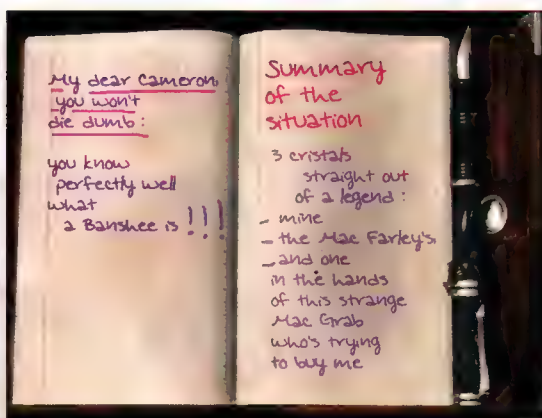 My dear Cameron,
you won't
die dumb:
you know
perfectly well
what
a Banshee is !!!
Summary
of the
situation
3 cristals
straight out
of a legend:
- mine
- the Mac Farley's
- and one
in the hands
of this strange
Mac Grab
who's trying
to buy me